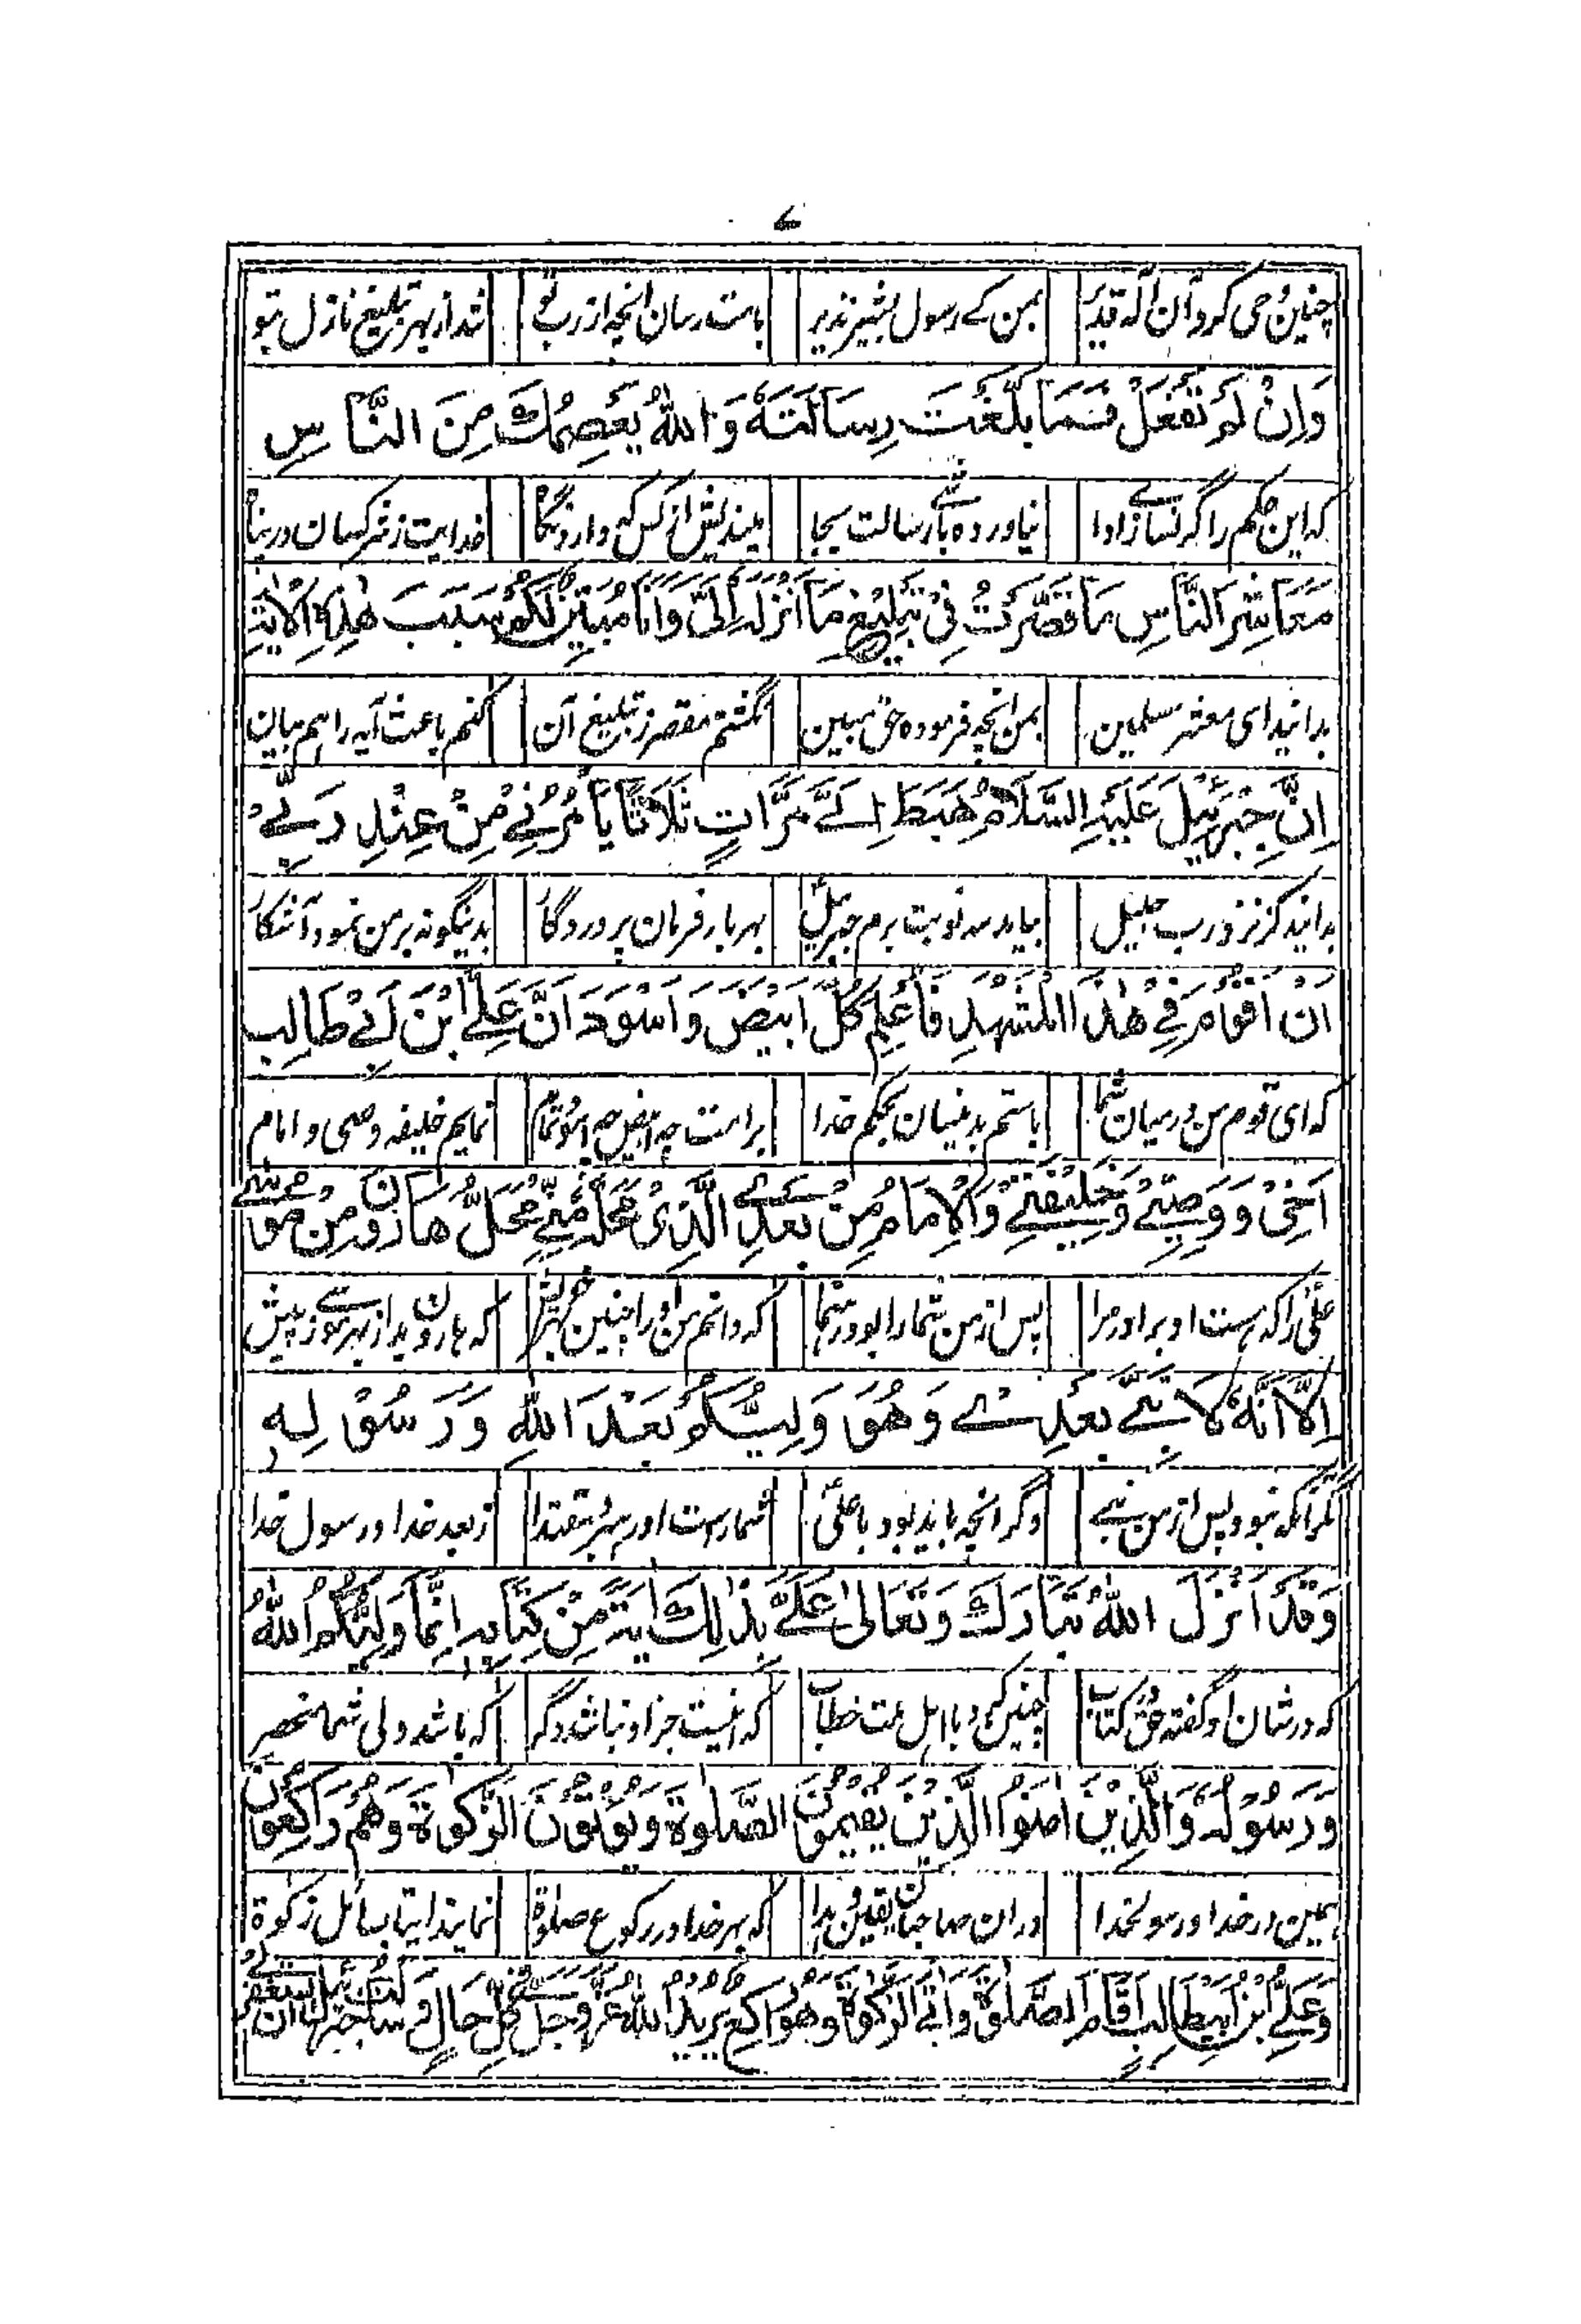 ۷
چنین وحی کرد آن آله قدیر بمن کے رسول بشیر نذیر بامت رسان انچه از رب تو شد از بهر تبلیغ نازل بتو
وَاِنْ لَمْ تَفْعَلْ فَمَا بَلَّغْتَ رِسَالَتَهٗ وَاللهُ یَعْصِمُكَ مِنَ النَّاسِ
که این حکم را گر نسازے ادا نیاوردہ بار رسالت بجا میندیش از کس که دارد نگاه خدایت ز شر کسان در پناہ
مَعَاشِرَ النَّاسِ مَا قَصَّرْتُ فِیْ تَبْلِیْغِ مَا اَنْزَلَهٗ اِلَیَّ وَاَنَا مُبَیِّنٌ لَكُمْ سَبَبَ هٰذِهِ الْاٰیَةِ
بدانید ای معشر مسلمین بمن انچه فرموده حق مبین نگشتم مقصر ز تبلیغ آن کنم باعث آیه را هم بیان
اِنَّ جِبْرَئِیْلَ عَلَیْهِ السَّلَامُ هَبَطَ اِلَےَّ مَرَّاتٍ ثَلَاثًا یَاْمُرُنِےْ مِنْ عِنْدِ رَبِّےْ
بدانید کز نزد رب جلیل بیامد سه نوبت برم جبرئیل بهر بار فرمان پروردگار بدینگونه بر من نمود آشکار
اَنْ اَقُوْمَ فِےْ هٰذَا الْمَشْهَدِ فَاُعْلِمَ كُلَّ اَبْیَضَ وَاَسْوَدَ اَنَّ عَلِےَّ ابْنَ اَبِےْ طَالِب
که ای قوم من در میان شما باستم بدینسان بحکم خدا نمایم خلیفه وصی و امام
اَخِیْ وَ وَصِیِّےْ وَخَلِیْفَتِےْ وَالْاِمَامُ مِنْ بَعْدِےْ الَّذِیْ مَحَلُّهٗ مِنِّےْ مَحَلُّ هَارُوْنَ مِنْ مُوْسٰے
علی را که هست او برادر مرا پس از من شما را بود رهنما که دانم من او را چنین بهر خویش که هارون بد از بهر موسے ز پیش
اِلَّا اَنَّهٗ لَا نَبِےَّ بَعْدِےْ وَهُوَ وَلِیُّكُمْ بَعْدَ اللهِ وَرَسُوْلِهٖ
مگر آنکه نبود پس از من نبے وگر انچه باید بود با علی شما راست او رهبر و مقتدا ز بعد خدا و رسول خدا
وَقَدْ اَنْزَلَ اللهُ تَبَارَكَ وَتَعَالٰی عَلَےَّ بِذٰلِكَ اٰیَةً مِنْ كِتَابِهٖ اِنَّمَا وَلِیُّكُمُ اللهُ
که در شان او گفته حق کتاب چنین کرد با اهل ملت خطاب که اینست جز او نباشد دگر که باشد ولی شما منحصر
وَرَسُوْلُهٗ وَالَّذِیْنَ اٰمَنُوا الَّذِیْنَ یُقِیْمُوْنَ الصَّلٰوةَ وَیُؤْتُوْنَ الزَّكٰوةَ وَهُمْ رَاكِعُوْنَ
همین در خدا و رسولخدا در ان صاحبان یقین و هدا که بهر خدا در رکوع صلٰوة نمایند ایتا بسائل زکٰوة
وَعَلِےُّ ابْنُ اَبِیْطَالِبٍ اَقَامَ الصَّلٰوةَ وَاٰتَے الزَّكٰوةَ وَهُوَ رَاكِعٌ یُرِیْدُ اللهَ عَزَّ وَجَلَّ فِےْ كُلِّ حَالٍ